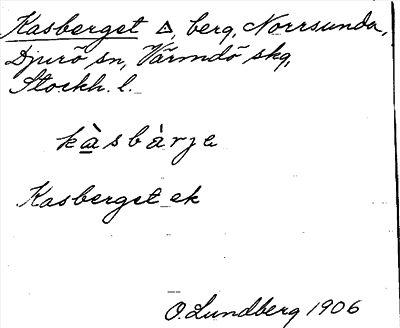 Kasberget △, berg, Norrsunda,
Djurö sn, Värmdö skg,
Stockh. l.
kàsbàrje
Kasberget ek
O. Lundberg 1906